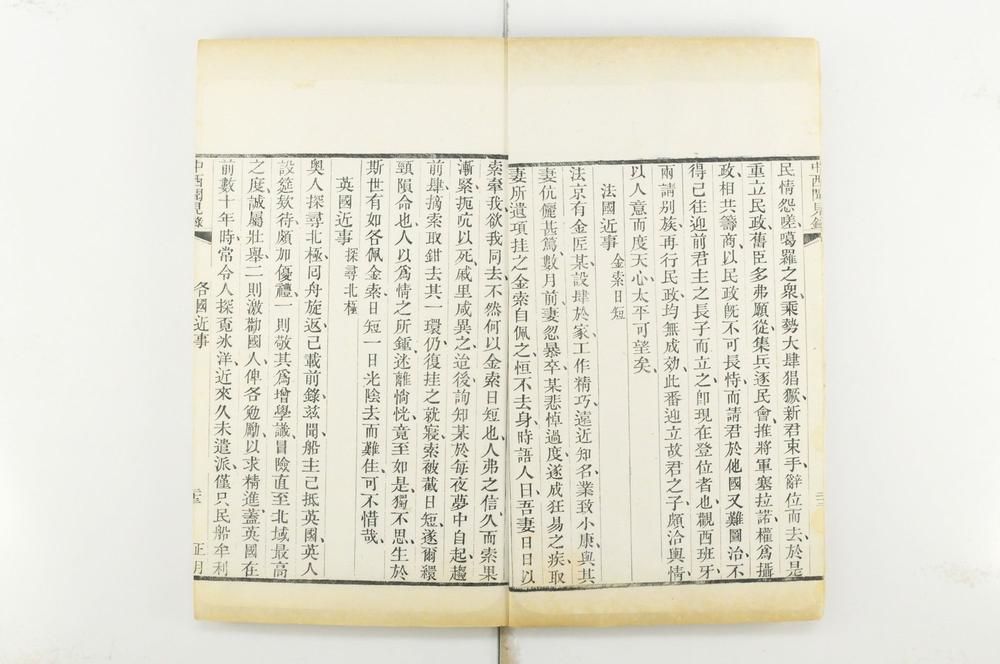 民情怨嗟、噶羅之衆、乘勢大肆猖獗、新君束手、辭位而去、於是
重立民政、舊臣多弗願從、集兵逐民會、推將軍塞拉諾、權爲攝
政、相共籌商、以民政旣不可長恃、而請君於他國又難圖治、不
得已往迎前君主之長子而立之、卽現在登位者也、觀西班牙
兩請别族、再行民政、均無成効、此番迎立故君之子、頗洽輿情、
以人意而度天心、太平可望矣、
法國近事 金索日短
法京有金匠某、設肆於家、工作精巧、遠近知名、業致小康、與其
妻伉儷甚篤、數月前、妻忽暴卒、某悲悼過度、遂成狂易之疾、取
妻所遺項挂之金索自佩之、恒不去身、時語人曰、吾妻日日以
索牽我、欲我同去、不然何以金索日短也、人弗之信、久而索果
漸緊、扼吭以死、戚里咸異之、迨後詢知某於每夜夢中自起、趨
前肆摘索取鉗去其一環、仍復挂之就寢、索被截日短、遂爾繯
頸隕命也、人以爲情之所鍾、迷離惝恍、竟至如是、獨不思生於
斯世、有如各佩金索、日短一日、光陰去而難住、可不惜哉、
英國近事 探尋北極
奥人探尋北極、囘舟旋返、已載前錄、兹聞船主已抵英國、英人
設筵欵待、頗加優禮、一則敬其爲增學識、冒險直至北域最高
之度、誠屬壯舉、二則激勸國人、俾各勉勵以求精進、葢英國在
前數十年時、常令人探覔氷洋、近來久未遣派、僅只民船牟利
中西聞見錄
各國近事
正月